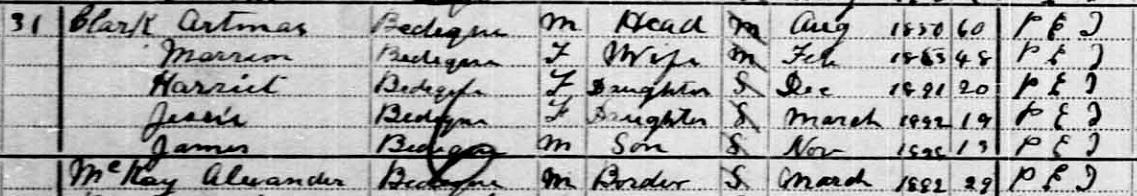 31 Clark Artmas Bedeque M Head M Aug 1850 60 P E I
Marrion Bedeque F Wife M Feb 1863 48 P E I
Harriet Bedeque F Daughter S Dec 1891 20 P E I
Jessie Bedeque F Daughter S March 1892 19 P E I
James Bedeque M Son S Nov 1898 13 P E I
McKay Alexander Bedeque M Border S March 1882 29 P E I